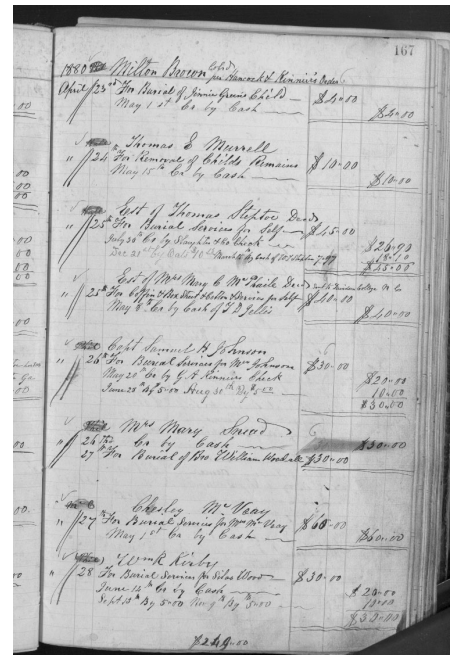 167
1880 Milton Brown Cold per Hancock & Kinnier's Order
April 23d For Burial of Jinnie Child — $4.00
May 1st Cr by Cash — $4.00
Thomas E Murrell
" 24 For Removal of Childs Remains $10.00
May 15th Cr by Cash — $10.00
Est of Thomas Steptoe Decd
" 25th For Burial Services for Self — $45.00
July 30th Cr by & Co Check — $26.90
Dec 21st by 18.10
$45.00
Est of Mrs Mary C McPhaile Decd
" 25th For Coffin & Box & Services for Self — $40.00
May 8th Cr by Cash of T D Jellis $40.00
Capt Samuel H Johnson
" 26th For Burial Services for Mrs Johnson $30.00
May 20th Cr by G A Kinnier Check $20.00
June 28th By 5.00 Aug 31st By $5.00 10.00
$30.00
Mrs Mary Snead
" 26th Cr by Cash — $30.00
27th For Burial of Bro William $30.00
Chesley McVeay
" 27th For Burial Services for Mrs McVeay $60.00
May 1st Cr by Cash — $60.00
Wm K Kirby
" 28 For Burial Services for Silas Wood — $30.00
June 14th Cr by Cash — $20.00
Sept 13th By 5.00 Nov 9th By $5.00 — 10.00
$30.00
$249.00